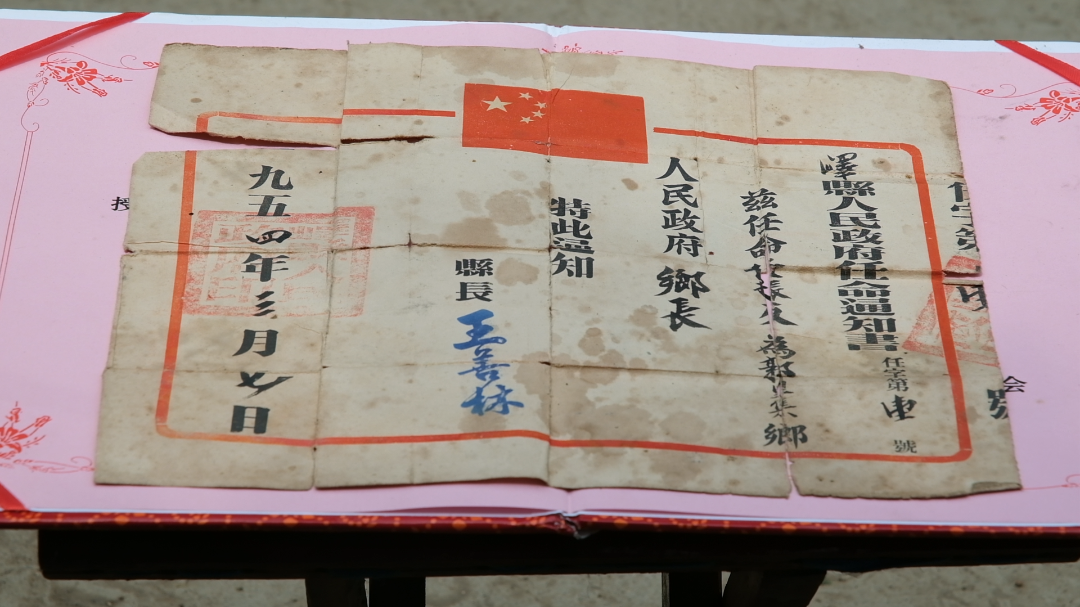 嶧縣人民政府任命通知書
任字第 號
茲任命 張 為郭 集鄉
人民政府鄉長
特此通知
縣長 王善林
九五四年三月七日
授
会